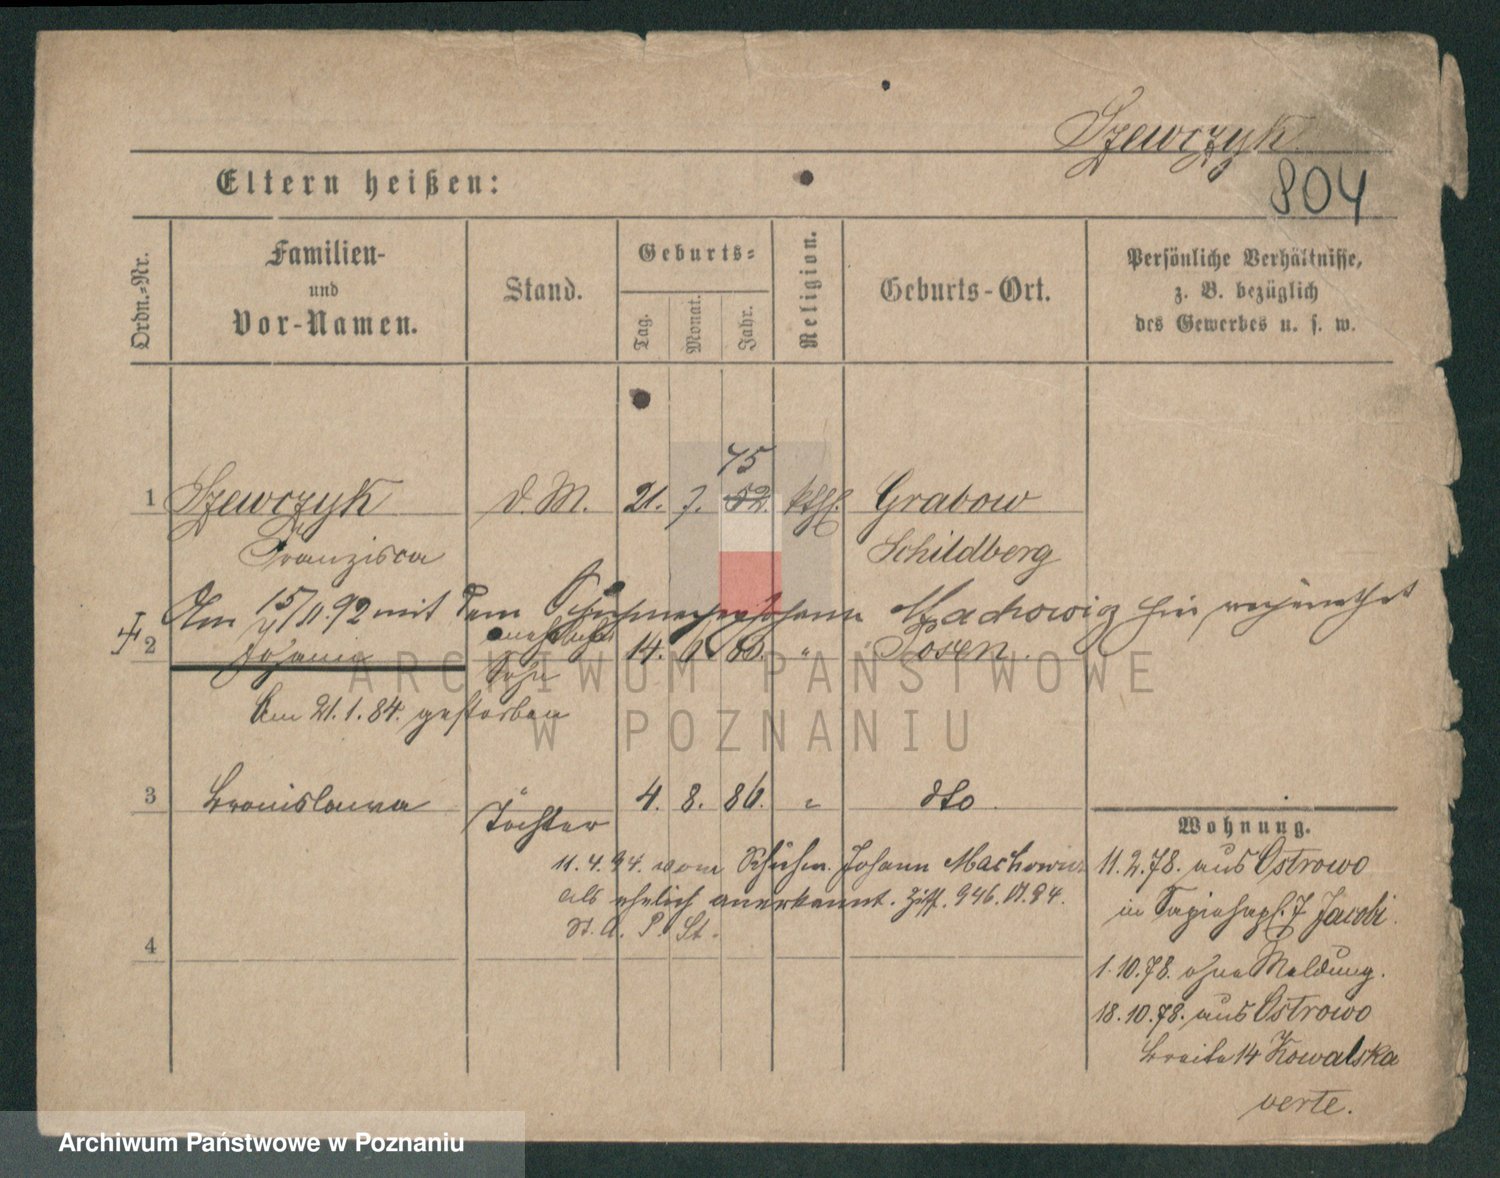 Szewczyk
804
Eltern heißen:
Ordn.-Nr.
Familien-
und
Vor-Namen.
Stand.
Geburts-
Tag.
Monat.
Jahr.
Religion.
Geburts-Ort.
Persönliche Verhältnisse,
z. B. bezüglich
des Gewerbes u. s. w.
75
1 Szewczyk d. M. 21. 7. 52. kthl. Grabow
Franzisca Schildberg
Am 15/11.92 mit dem Schuhmacher Johann Machowicz hier
2 Johann unehelicher Sohn 14. 60. " Posen.
Am 21.1.84. gestorben
3 Bronislawa Tochter 4. 8. 86. " dto
11.4.94. vom Schuhm. Johann Machowicz
als ehelich anerkannt. 946. VI.94.
St. A. P. St.
4
Wohnung.
11.2.78. aus Ostrowo
in 7 Jacobi.
1.10.78. ohne Meldung.
18.10.78. aus Ostrowo
Breite 14 Kowalska
verte.
ARCHIWUM PAŃSTWOWE
W POZNANIU
Archiwum Państwowe w Poznaniu